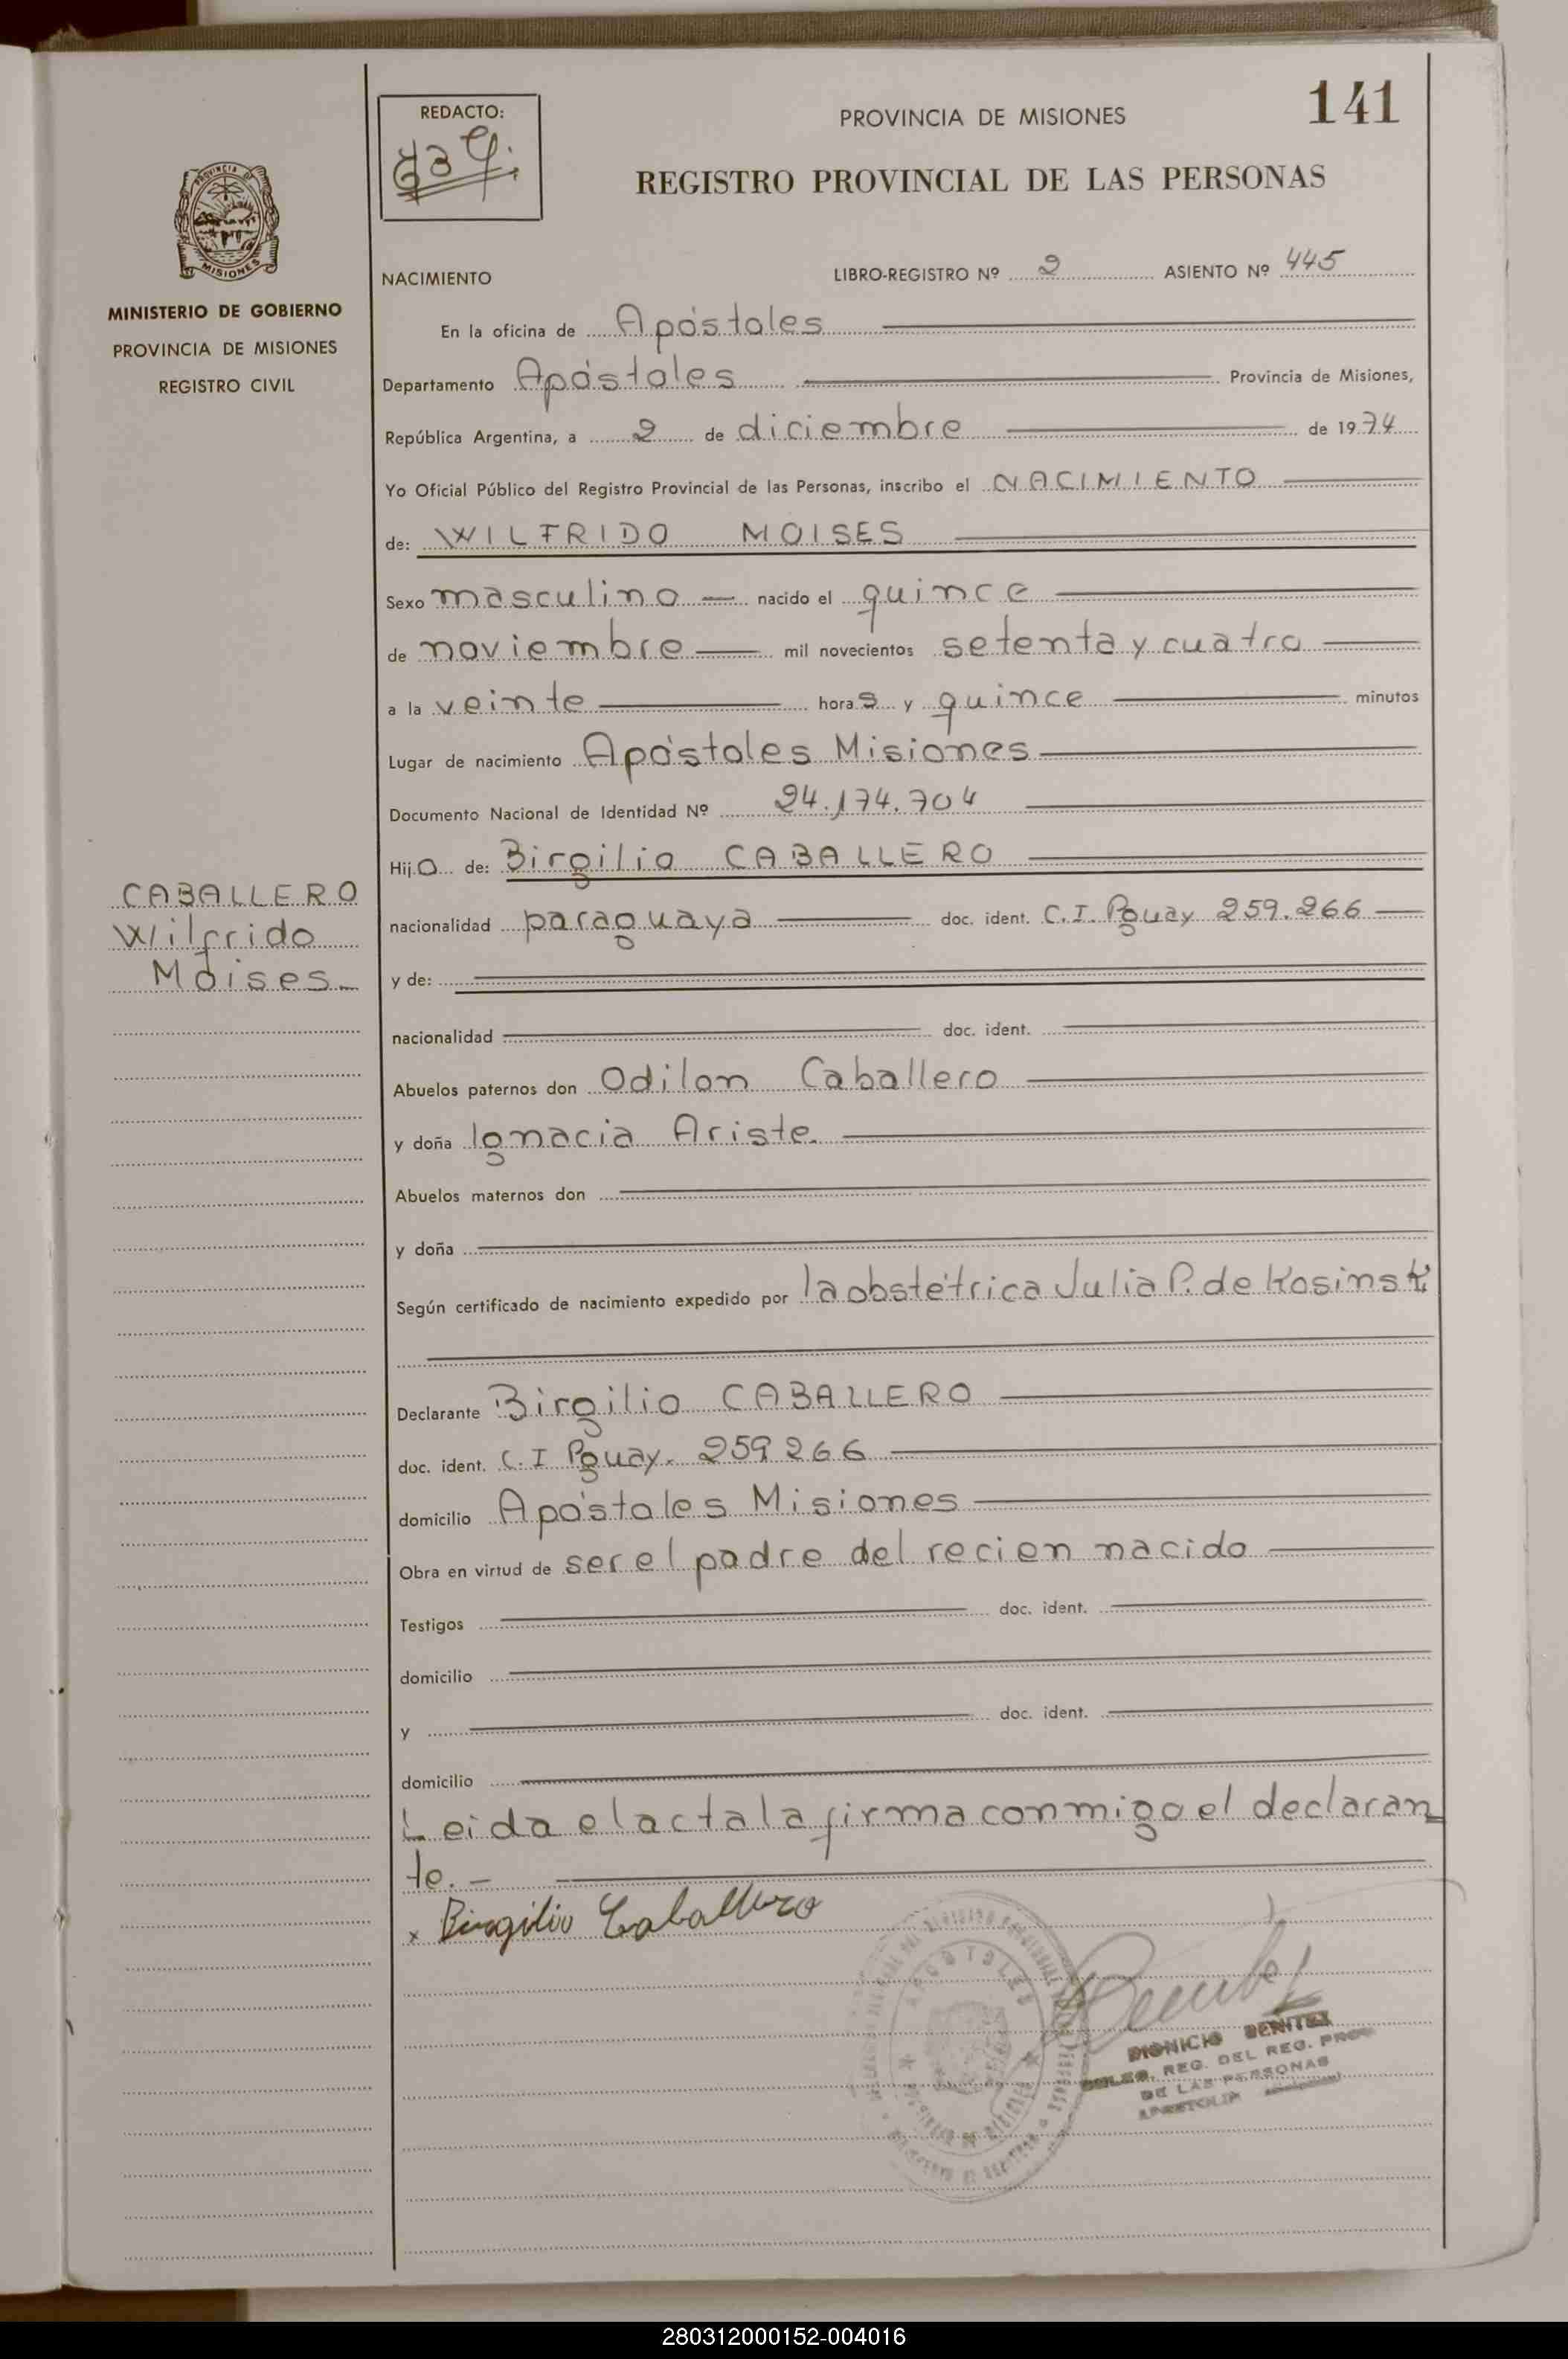 141
REDACTO:
PROVINCIA DE MISIONES
REGISTRO PROVINCIAL DE LAS PERSONAS
PROVINCIA DE
MISIONES
MINISTERIO DE GOBIERNO
PROVINCIA DE MISIONES
REGISTRO CIVIL
NACIMIENTO LIBRO-REGISTRO Nº 2 ASIENTO Nº 445
En la oficina de Apóstoles
Departamento Apóstoles Provincia de Misiones,
República Argentina, a 2 de diciembre de 1974
Yo Oficial Público del Registro Provincial de las Personas, inscribo el NACIMIENTO
de: WILFRIDO MOISES
Sexo masculino — nacido el quince
de noviembre — mil novecientos setenta y cuatro
a la veinte horas y quince minutos
Lugar de nacimiento Apóstoles Misiones
Documento Nacional de Identidad Nº 24.174.704
Hijo de: Birgilio CABALLERO
nacionalidad paraguaya doc. ident. C.I. Pguay 259.266 —
CABALLERO
Wilfrido
Moises_
y de:
nacionalidad doc. ident.
Abuelos paternos don Odilon Caballero
y doña Ignacia Ariste.
Abuelos maternos don
y doña
Según certificado de nacimiento expedido por la obstétrica Julia P. de Kosinski
Declarante Birgilio CABALLERO
doc. ident. C.I Pguay. 259266
domicilio Apóstoles Misiones
Obra en virtud de ser el padre del recien nacido
Testigos doc. ident.
domicilio
y doc. ident.
domicilio
Leida el acta la firma conmigo el declaran
te.-
x Birgilio Caballero
APOSTOLES
DIONICIO BENITEZ
REG. DEL REG. PROV
DE LAS PERSONAS
280312000152-004016